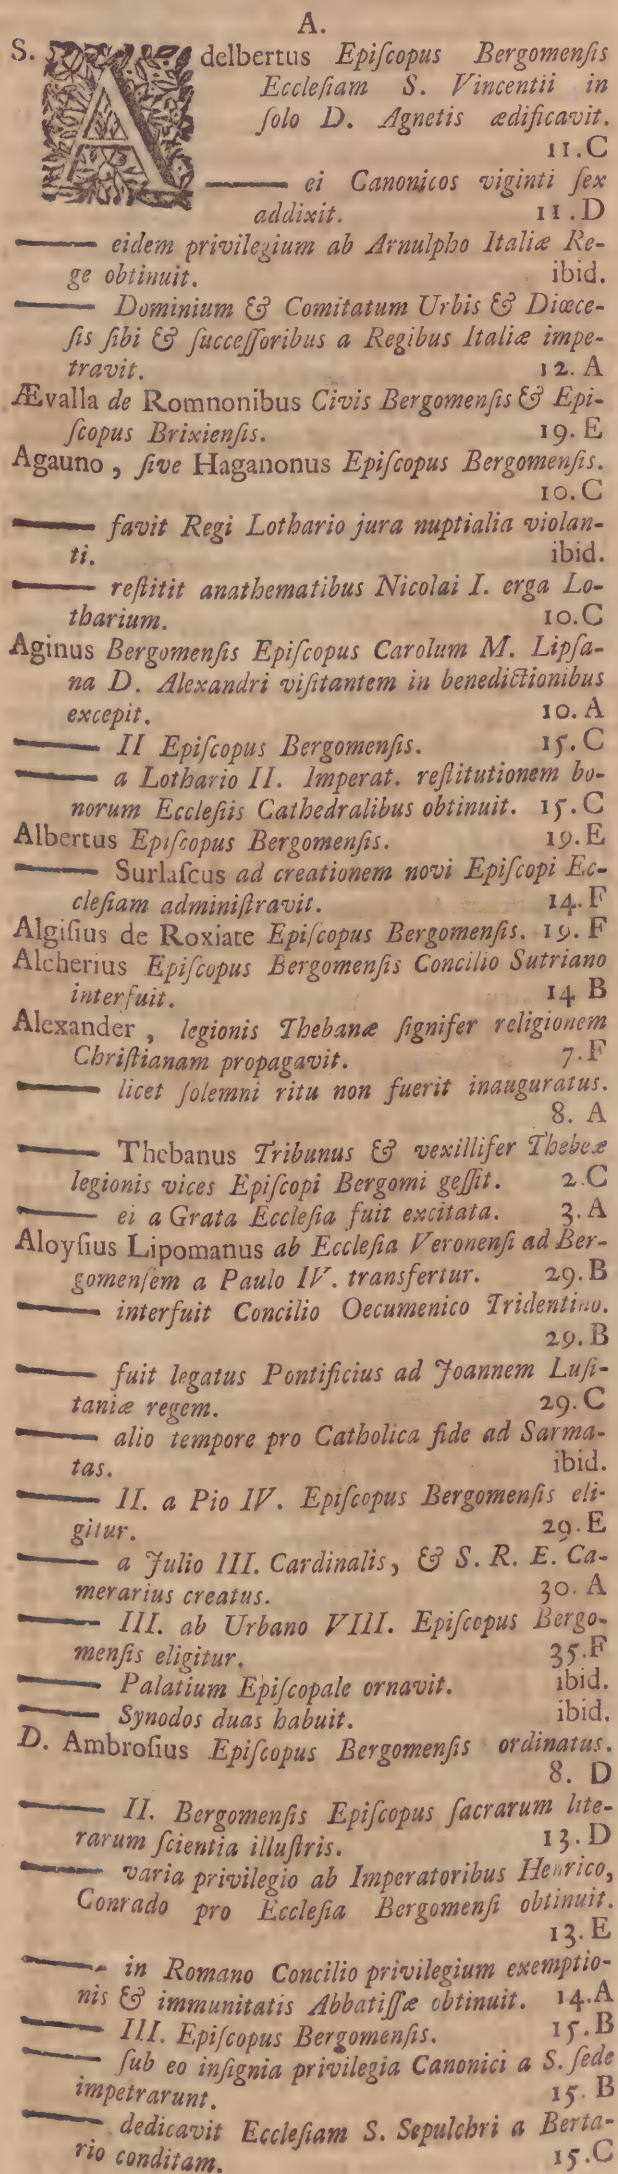 A.
S. Adelbertus Epiſcopus Bergomenſis
Eccleſiam S. Vincentii in
ſolo D. Agnetis ædificavit.
11.C
—— ei Canonicos viginti ſex
addixit. 11.D
—— eidem privilegium ab Arnulpho Italiæ Re-
ge obtinuit. ibid.
—— Dominium & Comitatum Urbis & Diœce-
ſis ſibi & ſucceſſoribus a Regibus Italiæ impe-
travit. 12. A
Ævalla de Romnonibus Civis Bergomenſis & Epi-
ſcopus Brixienſis. 19. E
Agauno, ſive Haganonus Epiſcopus Bergomenſis.
10.C
—— favit Regi Lothario jura nuptialia violan-
ti. ibid.
—— reſtitit anathematibus Nicolai I. erga Lo-
tharium. 10.C
Aginus Bergomenſis Epiſcopus Carolum M. Lipſa-
na D. Alexandri viſitantem in benedictionibus
excepit. 10. A
—— II Epiſcopus Bergomenſis. 15.C
—— a Lothario II. Imperat. reſtitutionem bo-
norum Eccleſiis Cathedralibus obtinuit. 15.C
Albertus Epiſcopus Bergomenſis. 19.E
—— Surlaſcus ad creationem novi Epiſcopi Ec-
cleſiam adminiſtravit. 14.F
Algiſius de Roxiate Epiſcopus Bergomenſis. 19. F
Alcherius Epiſcopus Bergomenſis Concilio Sutriano
interfuit. 14 B
Alexander, legionis Thebanæ ſignifer religionem
Chriſtianam propagavit. 7.F
—— licet ſolemni ritu non fuerit inauguratus.
8. A
—— Thebanus Tribunus & vexillifer Thebeæ
legionis vices Epiſcopi Bergomi geſſit. 2.C
—— ei a Grata Eccleſia fuit excitata. 3.A
Aloyſius Lipomanus ab Eccleſia Veronenſi ad Ber-
gomenſem a Paulo IV. transfertur. 29.B
—— interfuit Concilio Oecumenico Tridentino.
29.B
—— fuit legatus Pontificius ad Joannem Luſi-
taniæ regem. 29.C
—— alio tempore pro Catholica fide ad Sarma-
tas. ibid.
—— II. a Pio IV. Epiſcopus Bergomenſis eli-
gitur. 29.E
—— a Julio III. Cardinalis, & S. R. E. Ca-
merarius creatus. 30. A
—— III. ab Urbano VIII. Epiſcopus Bergo-
menſis eligitur. 35.F
—— Palatium Epiſcopale ornavit. ibid.
—— Synodos duas habuit. ibid.
D. Ambroſius Epiſcopus Bergomenſis ordinatus.
8. D
—— II. Bergomenſis Epiſcopus ſacrarum lite-
rarum ſcientia illuſtris. 13.D
—— varia privilegio ab Imperatoribus Henrico,
Conrado pro Eccleſia Bergomenſi obtinuit.
13.E
—— in Romano Concilio privilegium exemptio-
nis & immunitatis Abbatiſſæ obtinuit. 14.A
—— III. Epiſcopus Bergomenſis. 15.B
—— ſub eo inſignia privilegia Canonici a S. ſede
impetrarunt. 15. B
—— dedicavit Eccleſiam S. Sepulchri a Berta-
rio conditam. 15.C